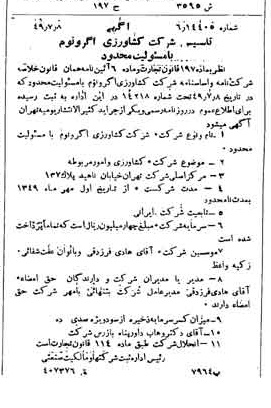 ح ۳۵۹۵ ص ۱۹۷
شماره ۶٫۱۴۴۰۵ آگهی ۴۹٫۷٫۸
تاسیس شرکت کشاورزی اگرونوم
با مسئولیت محدود
نظر بماده ۱۹۷ قانون تجارت و ماده ۶ آئین نامه همان قانون خلاصه
شرکتنامه و اساسنامه شرکت کشاورزی اگرونوم با مسئولیت محدود که
در تاریخ ۴۹٫۷٫۸ تحت شماره ۱۴۲۱۸ در این اداره به ثبت رسیده
برای اطلاع عموم در روزنامه رسمی و یکی از جراید کثیرالانتشار یومیه تهران
آگهی میشود
۱ـ نام و نوع شرکت ـ کشاورزی اگرونوم با مسئولیت
محدود ـ
۲ ـ موضوع شرکت ـ کشاورزی و امور مربوطه
۳ـ مرکز اصلی شرکت تهران خیابان ناهید پلاک ۱۳۷
۴ ـ مدت شرکت ـ از تاریخ اول مهر ماه ۱۳۴۹
بمدت نامحدود
۵ـ تابعیت شرکت ـ ایرانی
۶ـ سرمایه شرکت مبلغ چهار میلیون ریال است که تماما پرداخت
شده است
۷ـ موسسین شرکت آقای هادی فرزدقی و بانوان عفت شقائی ـ
زکیه واعظ
۸ـ مدیر یا مدیران شرکت و دارندگان حق امضاء
آقای هادی فرزدقی مدیرعامل شرکت بتنهائی با مهر شرکت حق
امضاء دارند ـ
۹ـ میزان کسر سرمایه ذخیره از سود ویژه صدی ده
۱۰ـ آقای دکتر وهاب داورپناه بازرس شرکت
۱۱ـ انحلال شرکت طبق ماده ۱۱۴ قانون تجارت است
رئیس اداره ثبت شرکتها و مالکیت صنعتی
۷۹۶۴ ۴۰۷۳۷۶